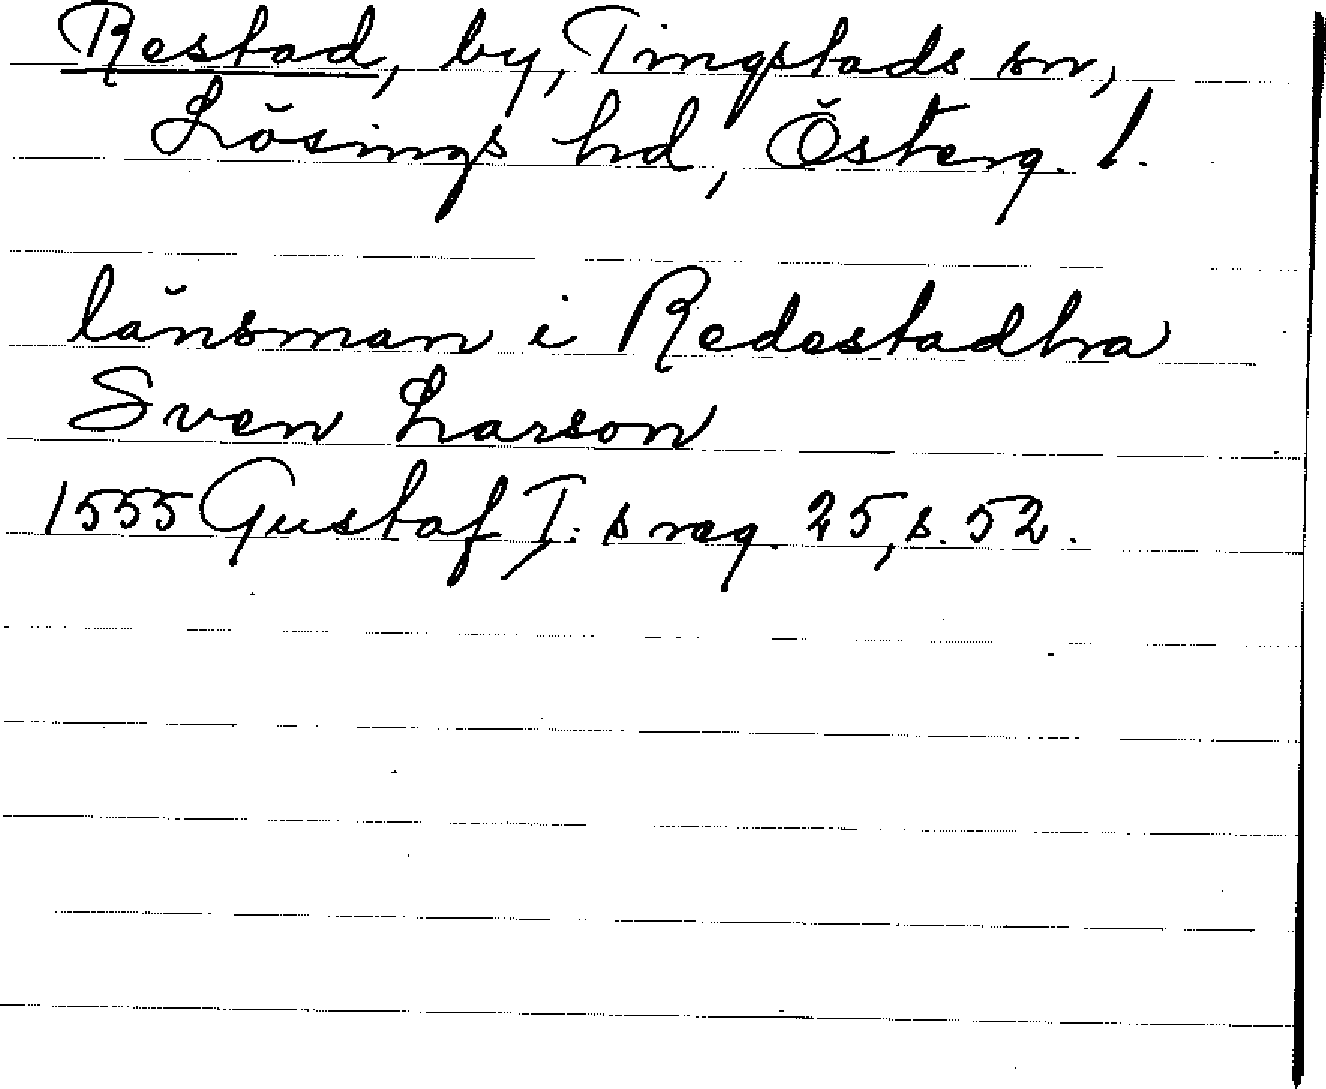 Restad, by, Tingstads sn,
Lösings hd, Österg. l.
länsman i Redestadhra
Sven Larson
1555 Gustaf I:s reg. 25, s. 52.